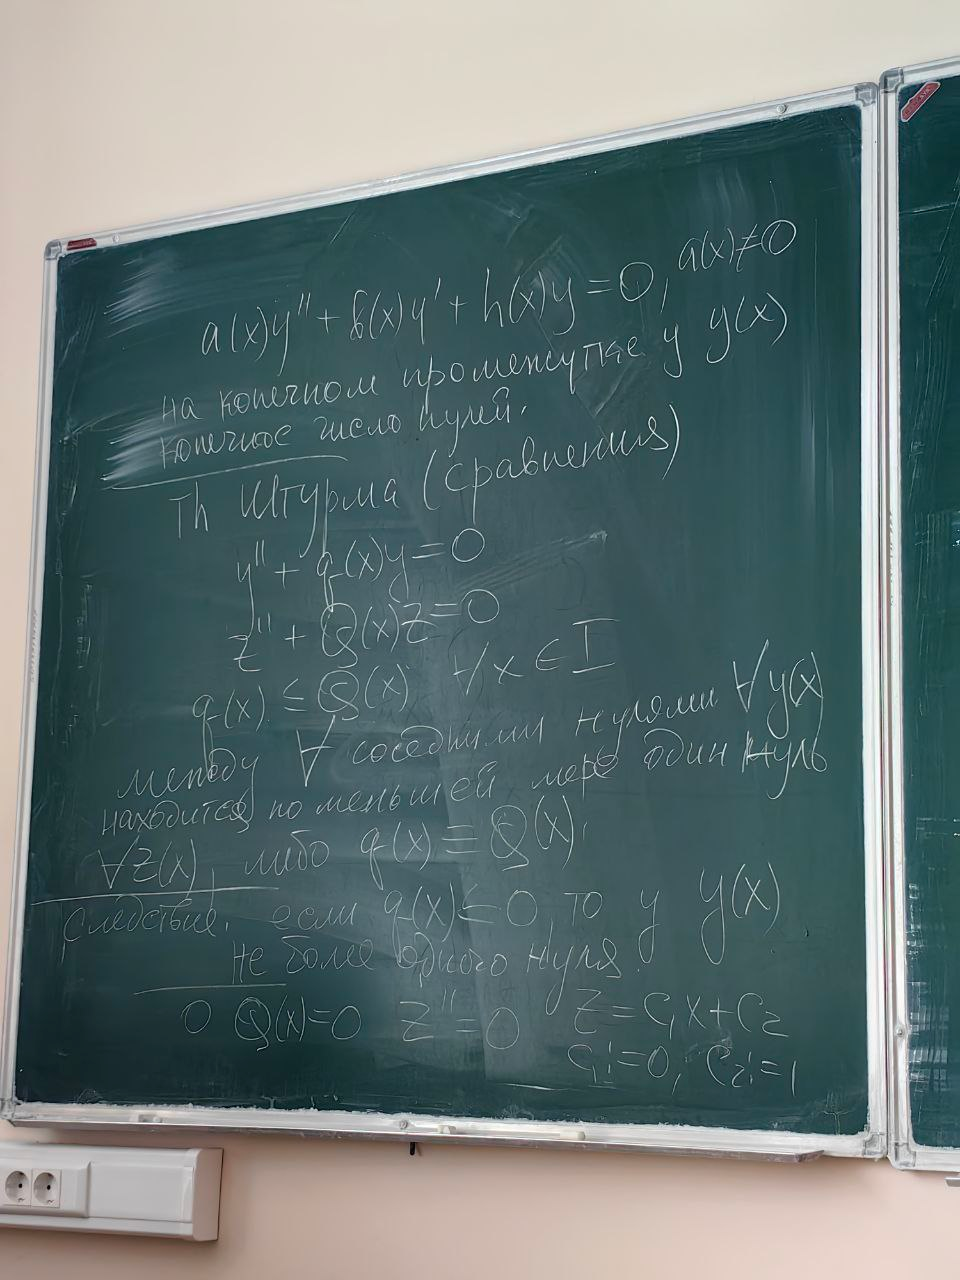 a(x)y'' + b(x)y' + h(x)y = 0, a(x)≠0
на конечном промежутке у y(x)
конечное число нулей.
Th Штурма (сравнения)
y'' + q(x)y = 0
z'' + Q(x)z = 0
q(x) ≤ Q(x) ∀x ∈ I
между ∀ соседними нулями ∀y(x)
находится по меньшей мере один нуль
∀z(x), либо q(x) ≡ Q(x).
Следствие. если q(x) ≤ 0, то у y(x)
не более одного нуля.
Q(x)=0 z''=0 z=C₁x+C₂
C₁:=0, C₂:=1